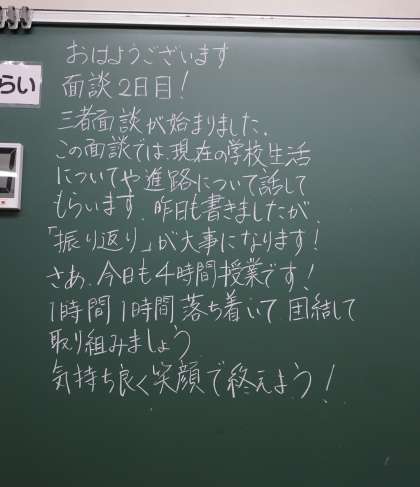 おはようございます
らい
面談2日目！
三者面談が始まりました。
この面談では、現在の学校生活
についてや進路について話して
もらいます。昨日も書きましたが、
「振り返り」が大事になります！
さあ、今日も4時間授業です！
1時間1時間落ち着いて団結して
取り組みましょう
気持ち良く笑顔で終えよう！